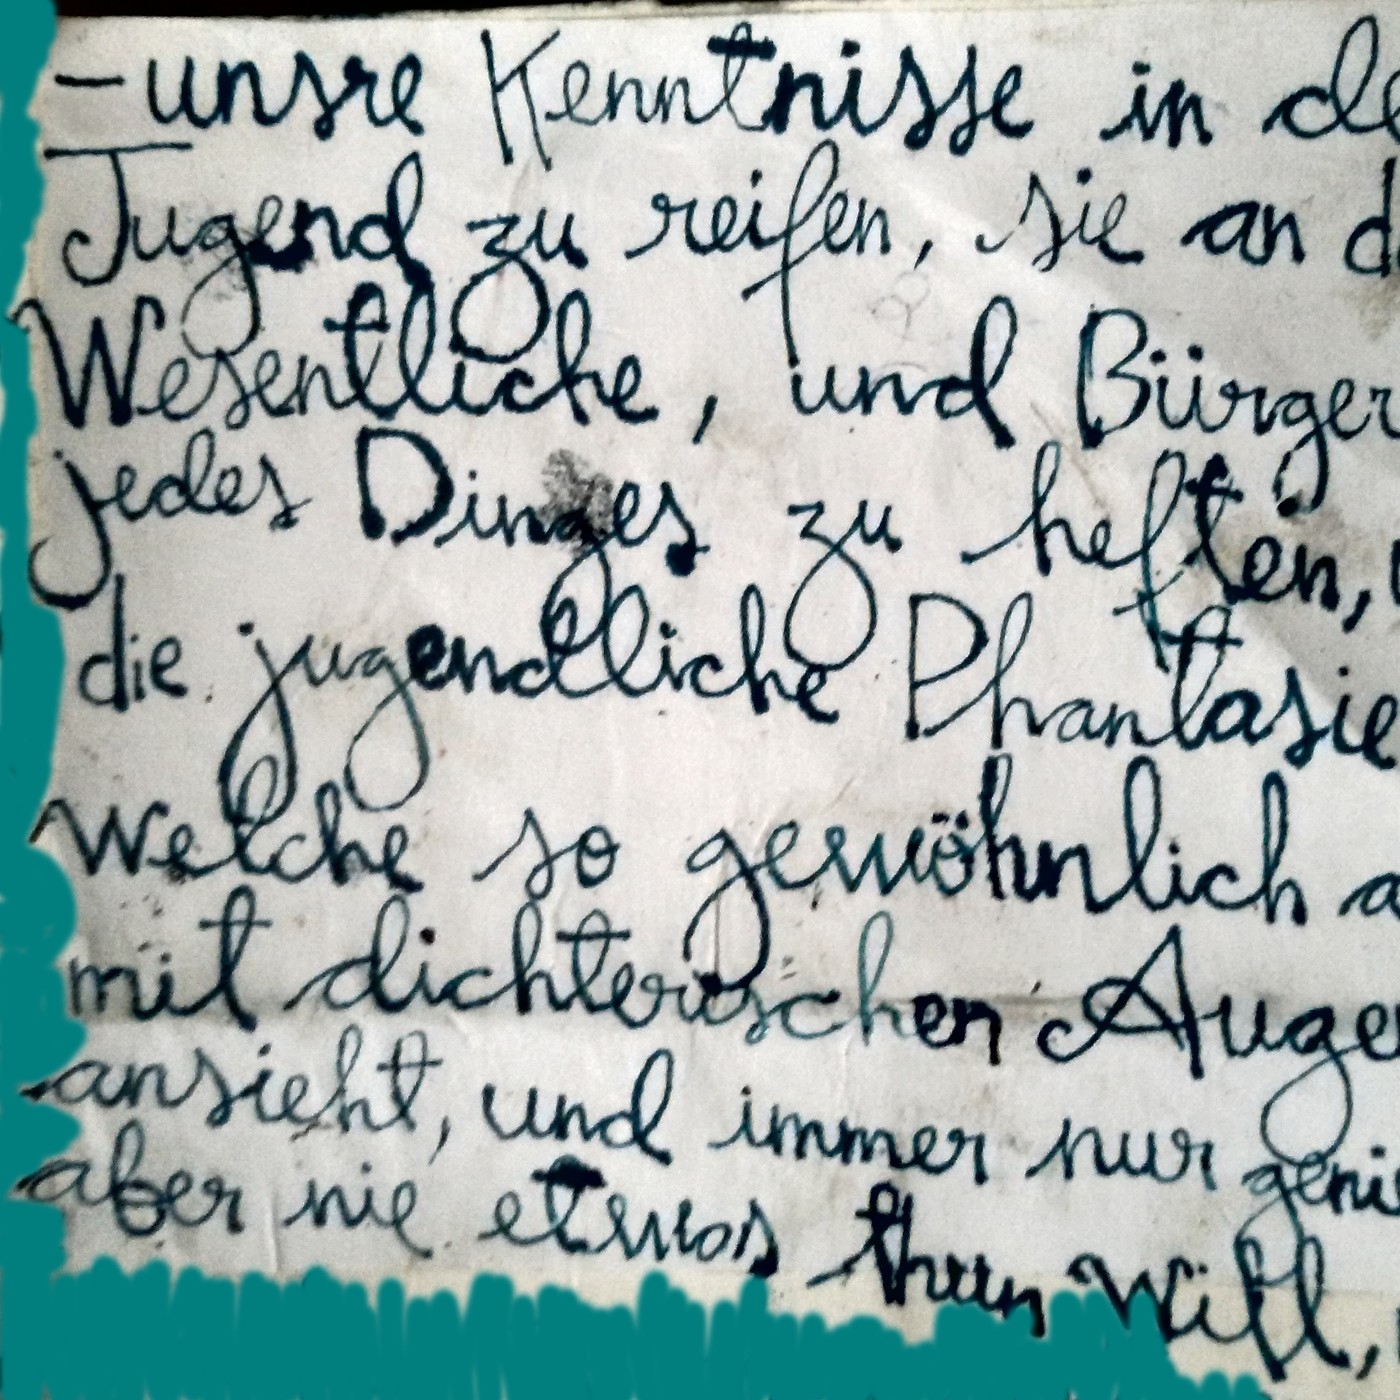 – unsre Kenntnisse in de
Jugend zu reifen, sie an d
Wesentliche, und Bürger
jedes Dinges zu heften,
die jugendliche Phantasie
Welche so gewöhnlich a
mit dichterischen Auge
ansieht, und immer nur geni
aber nie etwas thun Will,